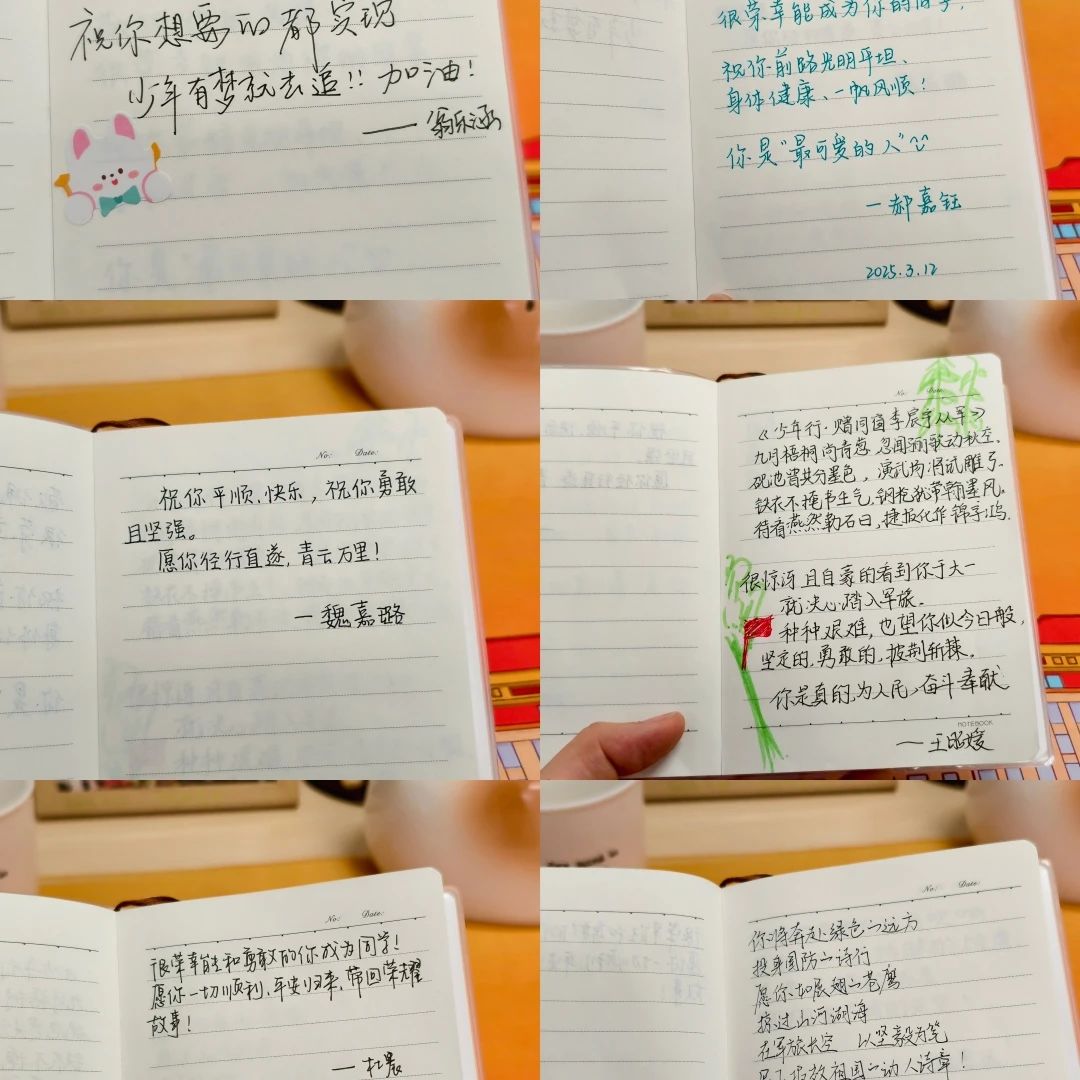 祝你想要的都实现
少年有梦就去追!! 加油!
——翁乐涵
很荣幸能成为你的同学,
祝你前路光明平坦、
身体健康、一帆风顺!
你是“最可爱的人”
—郝嘉钰
2025.3.12
No: Date:
祝你平顺、快乐，祝你勇敢
且坚强。
愿你径行直遂，青云万里!
—魏嘉璐
No: Date:
《少年行·赠同窗李辰宇从军》
九月梧桐尚青葱，忽闻 歌动秋空。
砚池曾共分墨色，演武均将试雕弓。
铁衣不掩书生气，钢枪犹带翰墨风。
待看燕然勒石日，捷报化作锦字鸿。
很惊讶且自豪的看到你于大一
就决心踏入军旅。
种种艰难，也望你似今日般，
坚定的，勇敢的，披荆斩棘。
你是真的，为人民，奋斗奉献
NOTEBOOK
——王昭媛
No: Date:
很荣幸能和勇敢的你成为同学!
愿你一切顺利，平安归来，带回荣耀
故事!
—杜晨
No: Date:
你将奔赴绿色的远方
投身国防的诗行
愿你如展翅的苍鹰
掠过山河湖海
在军旅长空 以坚毅为笔
祖国的动人诗章!